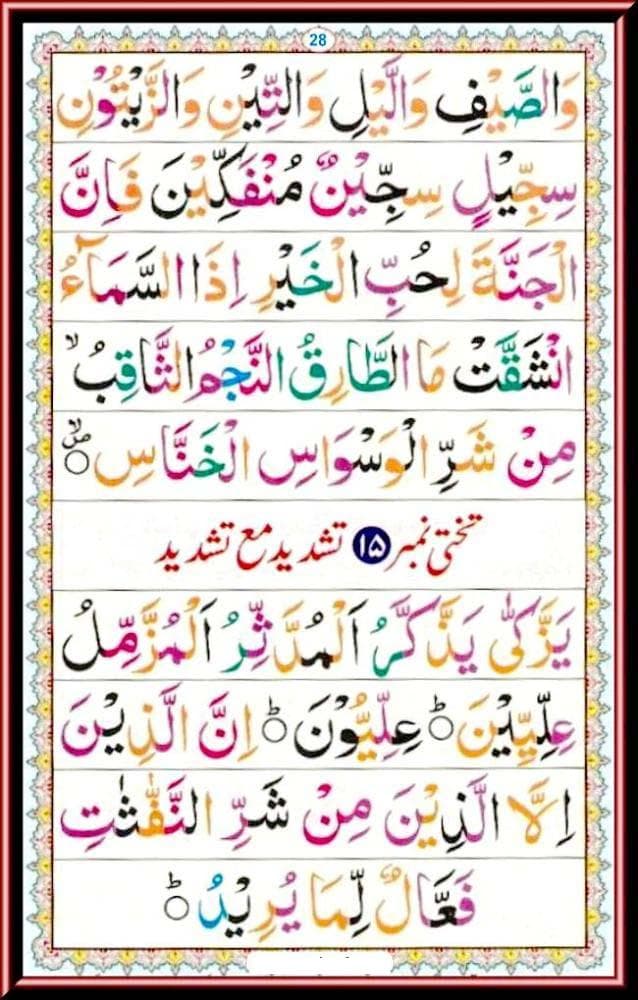 28
وَالصَّيْفِ وَالَّيْلِ وَالتِّيْنِ وَالزَّيْتُوْنِ
سِجِّيْلٍ سِجِّيْنٌ مُنْفَكِّيْنَ فَاِنَّ
الْجَنَّةَ لِحُبِّ الْخَيْرِ اِذَا السَّمَآءُ
انْشَقَّتْ مَا الطَّارِقُ النَّجْمُ الثَّاقِبُ ۙ
مِنْ شَرِّ الْوَسْوَاسِ الْخَنَّاسِ
تختی نمبر ۱۵ تشدید مع تشدید
يَزَّكّٰى يَذَّكَّرُ اَلْمُدَّثِّرُ اَلْمُزَّمِّلُ
عِلِّيِّيْنَ ؕ عِلِّيُّوْنَ ؕ اِنَّ الَّذِيْنَ
اِلَّا الَّذِيْنَ مِنْ شَرِّ النَّفّٰثٰتِ
فَعَّالٌ لِّمَا يُرِيْدُ ؕ